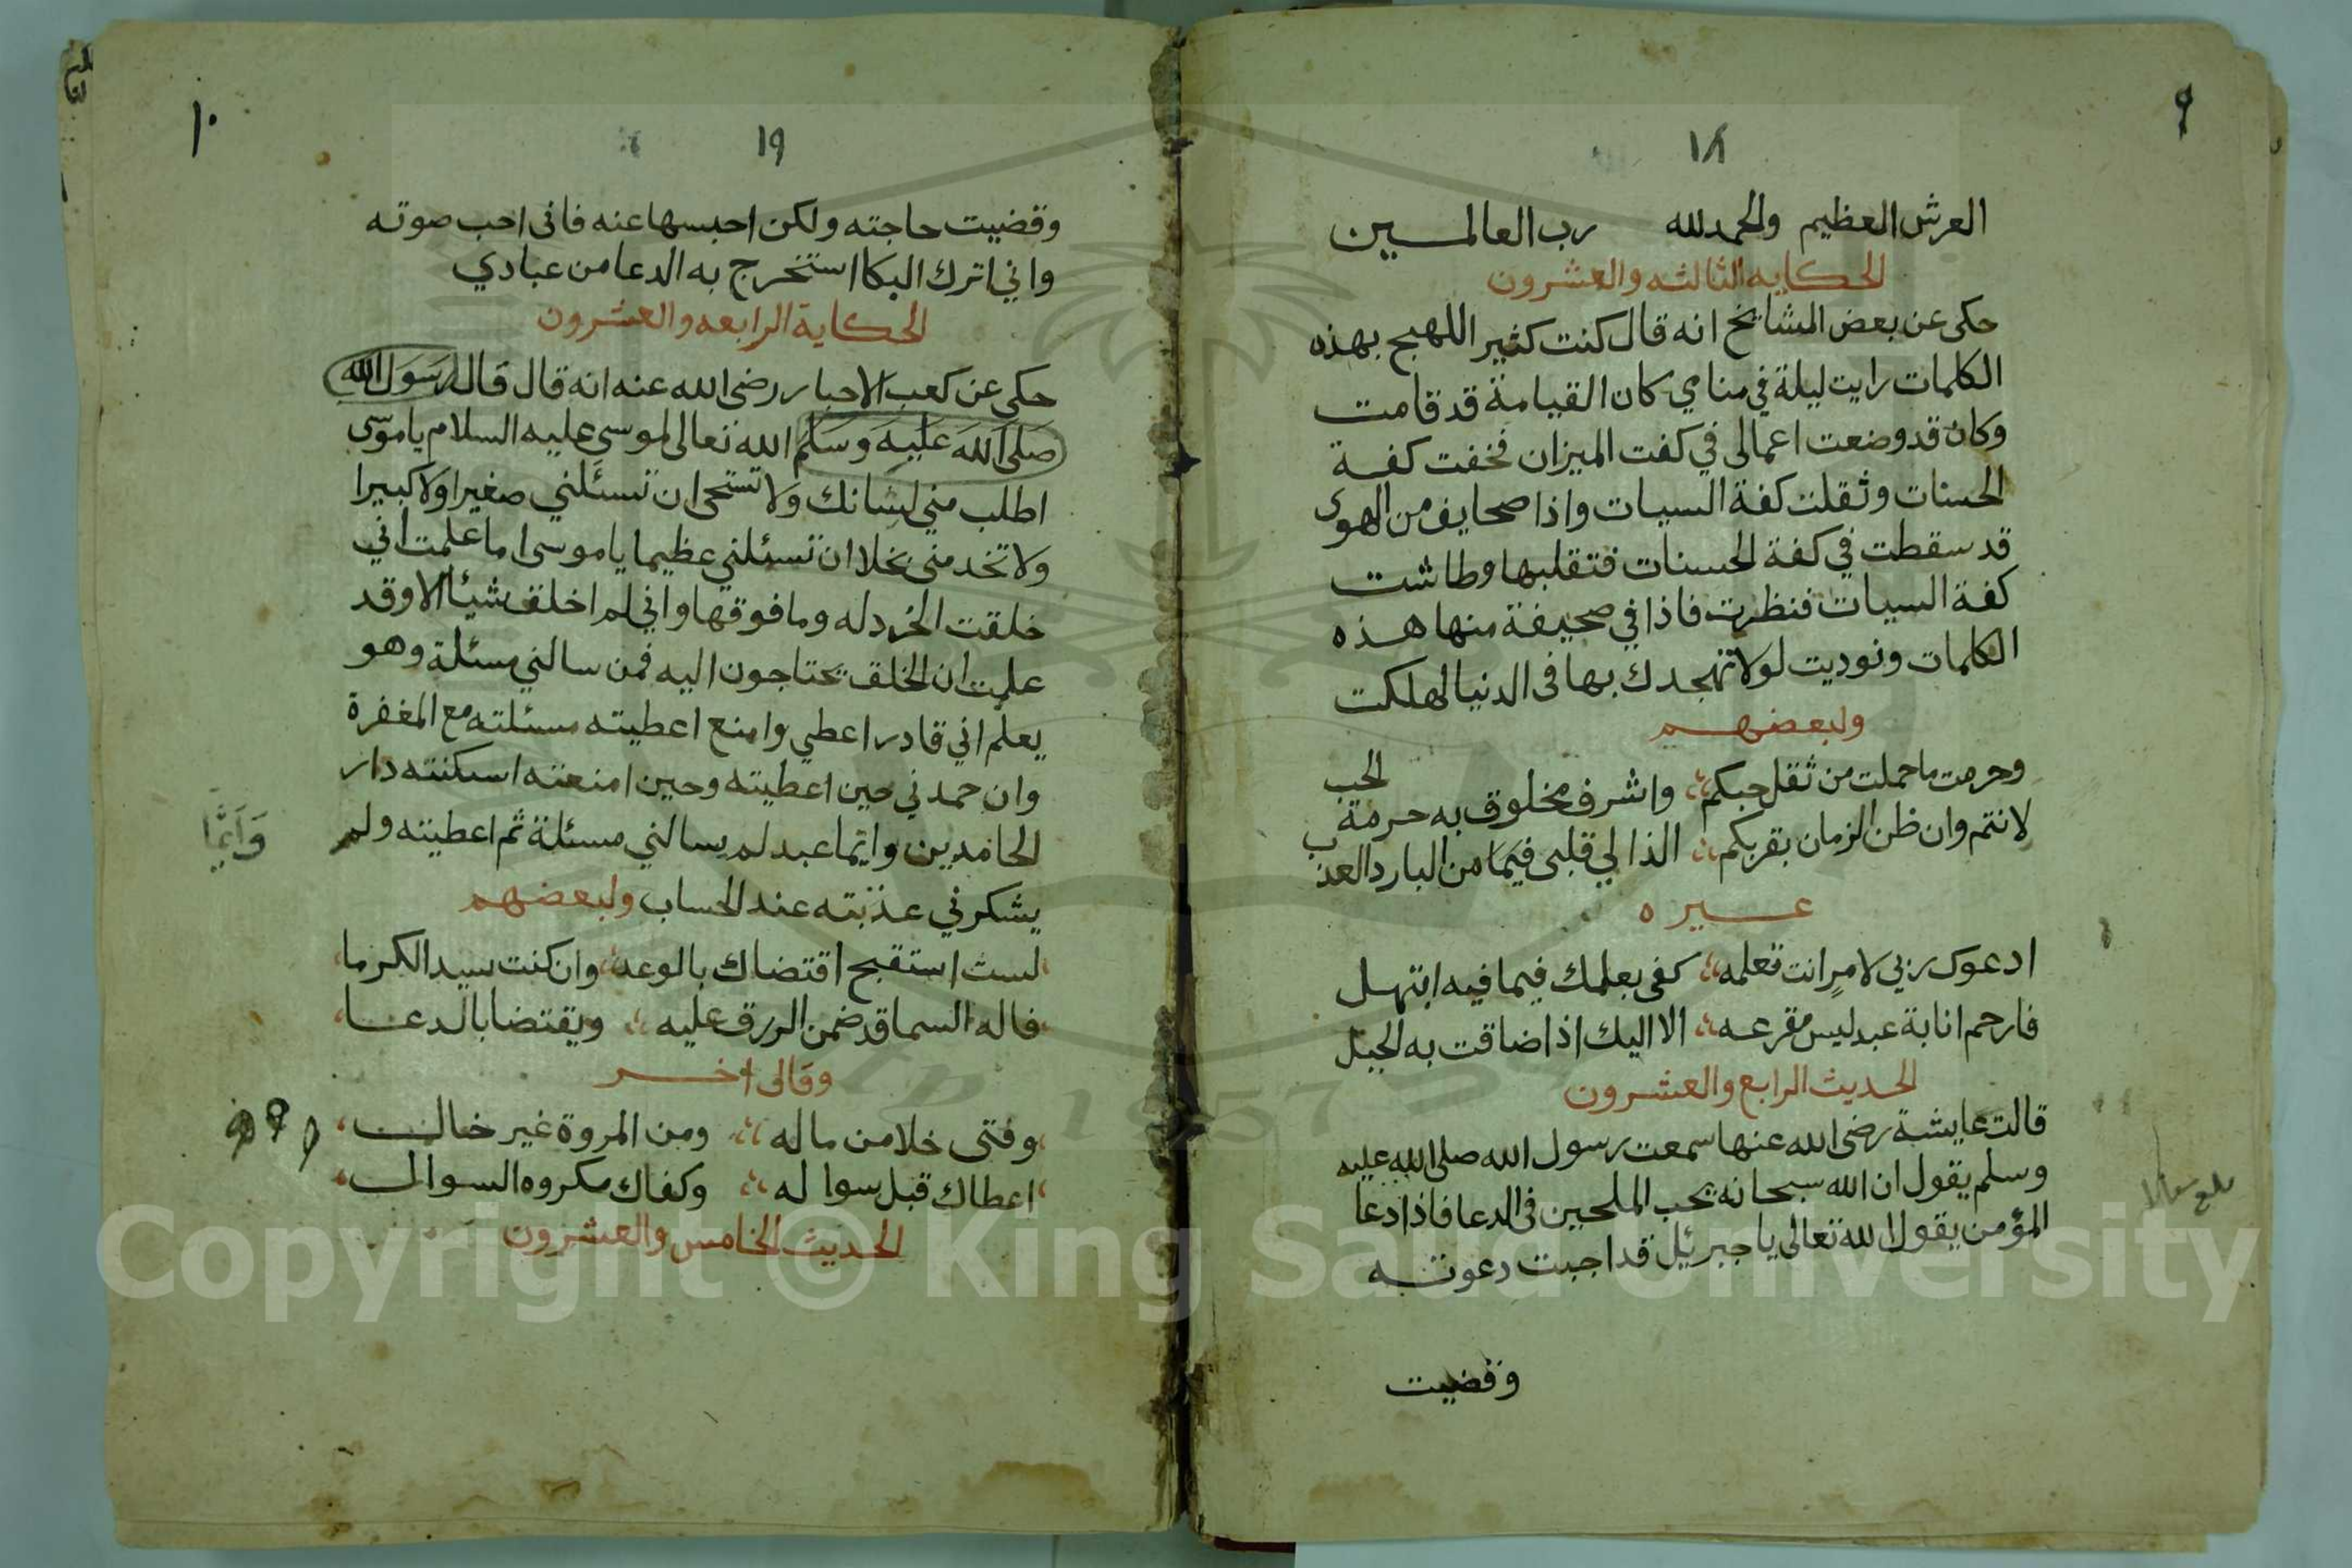 ٩
١٨
العرش العظيم والحمد لله رب العالمـــين
الحكايه الثالثه والعشرون
حكى عن بعض المشايخ انه قال كنت كثير اللهيج بهذه
الكلمات رايت ليلة في منامي كان القيامة قد قامت
وكان قد وضعت اعمالى في كفت الميزان فخفت كفـة
الحسنات وثقلت كفة السيات واذا صحايف من الهوى
قد سقطت في كفة الحسنات فتقلبها وطاشت
كفة السيات فنظرت فاذا في صحيفة منها هـذه
الكلمات ونوديت لولا تهجدك بها فى الدنيا لهلكت
ولبعضهـــم
وحرمت ما حملت من ثقل حبكم واشرف مخلوق به حرمة الحب
لانتم وان ظن الزمان بقربكم الذا لي قلبى فيما من البارد العذب
غـــيره
ادعوك ربي لامر انت تعلمه كفى بعلمك فيما فيه ابتهـل
فارحم انابة عبد ليس مقرعـه الا اليك اذا ضاقت به الحيل
الحديث الرابع والعشرون
قالت عايشة رضى الله عنها سمعت رسول الله صلى الله عليه
وسلم يقول ان الله سبحانه يحب الملحين فى الدعا فاذا دعا
المؤمن يقول الله تعالى يا جبرئيل قد اجبت دعوتـــه
وقضيت
١٠
١٩
وقضيت حاجته ولكن احبسها عنه فانى احب صوته
واني اترك البكا استخرج به الدعا من عبادي
الحكاية الرابعه والعشرون
حكي عن كعب الاحبار رضى الله عنه انه قال قال رسول الله
صلى الله عليه وسلم الله تعالى لموسى عليه السلام يا موسى
اطلب مني لشانك ولا تستحى ان تسئلني صغيرا ولا كبيرا
ولا تخد منى بخلا ان تسئلني عظيما يا موسى اما علمت اني
خلقت الخردله وما فوقها واني لم اخلف شيئا الا وقد
علمت ان الخلق يحتاجون اليه فمن سالني مسئلة وهو
يعلم اني قادر اعطي وامنع اعطيته مسئلته مع المغفرة
وان حمدني حين اعطيته وحين امنعته اسكنته دار
الحامدين وايما عبد لم يسالني مسئلة ثم اعطيته ولم
وَايَّمَا
يشكرني عذبته عند الحساب ولبعضهم
لست استقبح اقتضاك بالوعد وان كنت سيد الكرما
فاله السما قد ضمن الرزق عليه ويقتضا بالدعـــا
وقال اخـــر
وفتى خلا من ماله ومن المروة غير خالـــ
اعطاك قبل سوا له وكفاك مكروه السوالـــ
الحديث الخامس والعشرون
Copyright © King Saud University
1957